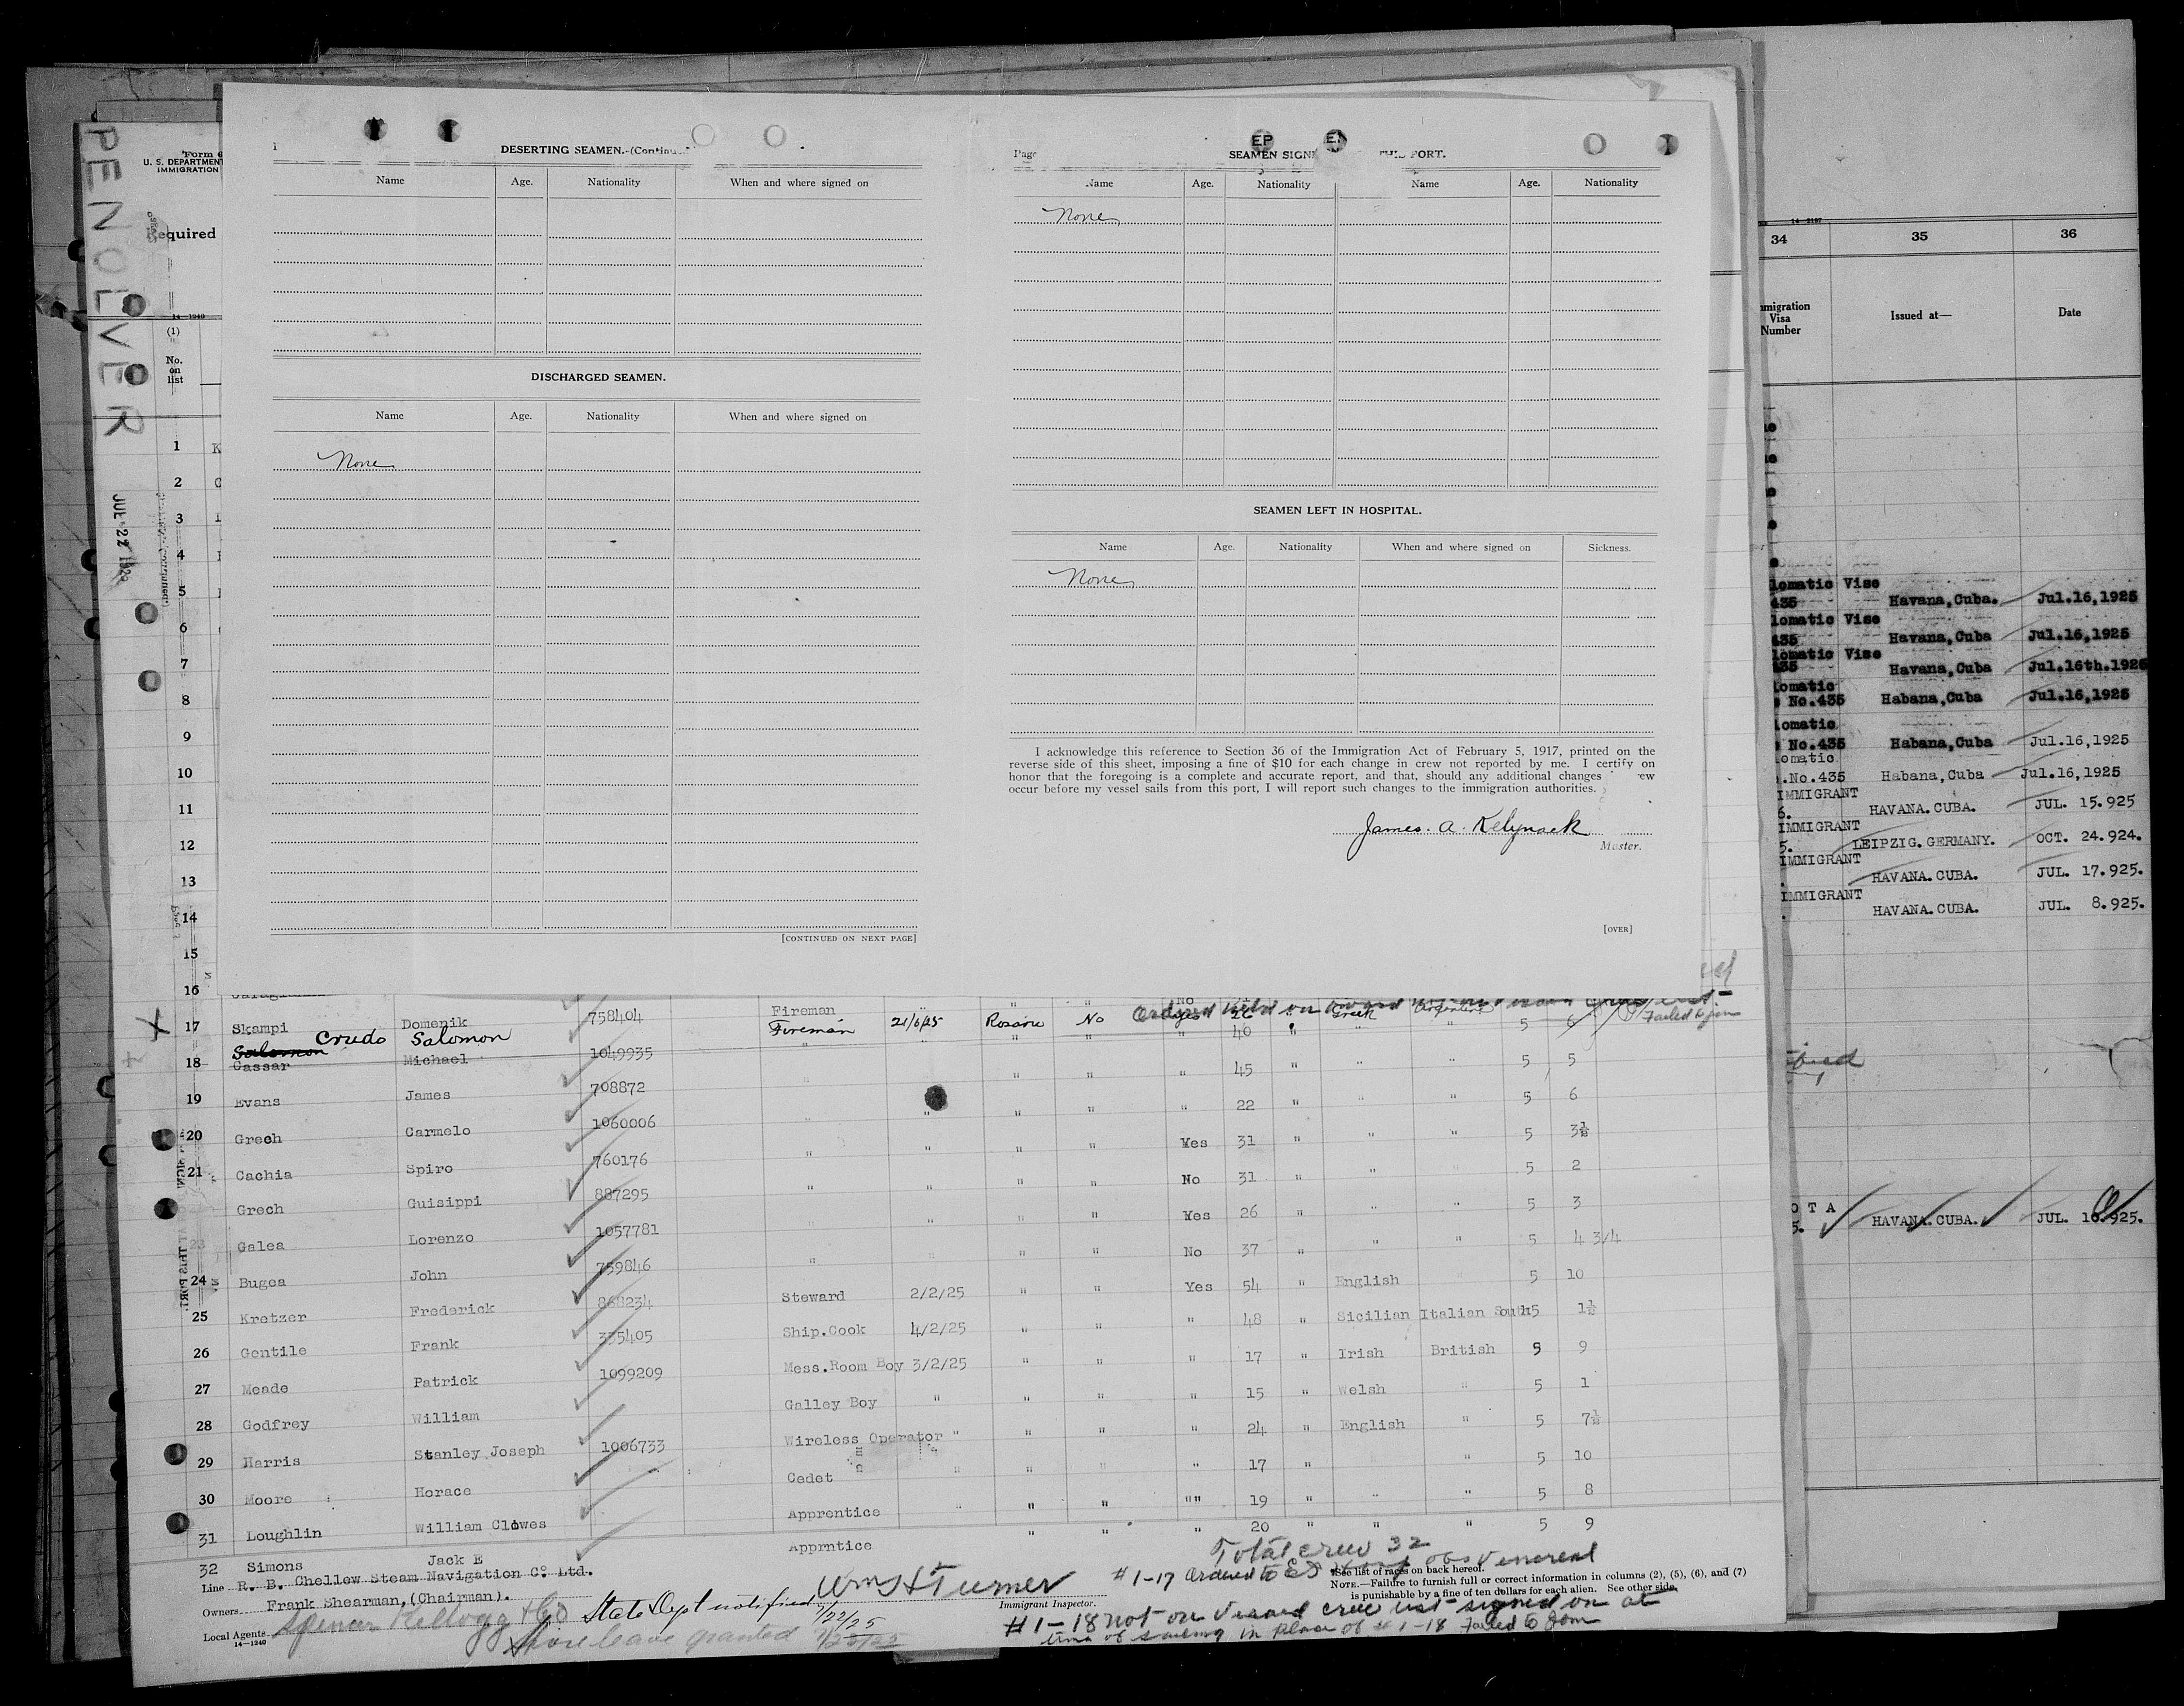 PENOLVER
JUL 22 192
Form 6
U. S. DEPARTMENT
IMMIGRATION
Required
14—1240
(1)
No.
on
list
1 K
2 C
3
4
5
6
7
8
9
10
11
12
13
14
15
16
DESERTING SEAMEN.
Name Age. Nationality When and where signed on
DISCHARGED SEAMEN.
Name Age. Nationality When and where signed on
None
[CONTINUED ON NEXT PAGE]
EP
Page SEAMEN SIGN THIS PORT.
Name Age. Nationality Name Age. Nationality
None
SEAMEN LEFT IN HOSPITAL.
Name Age. Nationality When and where signed on Sickness.
None
I acknowledge this reference to Section 36 of the Immigration Act of February 5, 1917, printed on the
reverse side of this sheet, imposing a fine of $10 for each change in crew not reported by me. I certify on
honor that the foregoing is a complete and accurate report, and that, should any additional changes ew
occur before my vessel sails from this port, I will report such changes to the immigration authorities.
James. A. Kelynack
Master.
[OVER]
14—2107
34 35 36
mmigration
Visa
Number
Issued at— Date
lomatic Vise
435 Havana,Cuba. Jul.16,1925
lomatic Vise
435 Havana,Cuba Jul.16,1925
lomatic Vise
435 Havana,Cuba Jul.16th.1925
lomatic
No.435 Habana,Cuba Jul.16,1925
lomatic
No.435 Habana,Cuba Jul.16,1925
lomatic
.No.435 Habana,Cuba Jul.16,1925
IMMIGRANT
6. HAVANA.CUBA. JUL. 15.925
IMMIGRANT
5. LEIPZIG.GERMANY. OCT. 24.924.
IMMIGRANT
HAVANA.CUBA. JUL. 17.925.
IMMIGRANT
HAVANA.CUBA. JUL. 8.925.
OTA
5. HAVANA.CUBA. JUL. 10.925.
X 17 Skampi Domenik 758404 Fireman
Salomon Crudo Salomon Fireman 21/6/25 Rosario No yes 26 Greek Failed to join
18 Cassar Michael 1049935 " " " " " 40 " " " 5 6
19 Evans James 708872 " " " " 45 " " " 5 5
20 Grech Carmelo 1060006 " " " " " 22 " " " 5 6
21 Cachia Spiro 760176 " " " " Yes 31 " " " 5 3½
Grech Guisippi 887295 " " " " No 31 " " " 5 2
23 Galea Lorenzo 1057781 " " " " Yes 26 " " " 5 3
24 Bugea John 759846 " " " " No 37 " " " 5 4 3/4
25 Kretzer Frederick 868234 Steward 2/2/25 " " Yes 54 " English " 5 10
26 Gentile Frank 335405 Ship.Cook 4/2/25 " " " 48 " Sicilian Italian South 5 1½
27 Meade Patrick 1099209 Mess.Room Boy 3/2/25 " " " 17 " Irish British 5 9
28 Godfrey William Galley Boy " " " " 15 " Welsh " 5 1
29 Harris Stanley Joseph 1006733 Wireless Operator " " " " 24 " English " 5 7½
30 Moore Horace Cedet " " " " 17 " " 5 10
31 Loughlin William Clowes Apprentice " " " "" 19 " " " 5 8
32 Simons Jack E Apprntice " " " 20 " " " 5 9
Line R. B. Chellew Steam Navigation Co. Ltd.
Owners Frank Shearman,(Chairman).
Local Agents Spencer Kellogg & Co
14—1240
State Dept notified 7/22/25
Shore leave granted 7/23/25
Wm H Turner
Immigrant Inspector.
Total crew 32
#1-17 Ordered to obs Venereal
See list of races on back hereof.
NOTE.—Failure to furnish full or correct information in columns (2), (5), (6), and (7)
is punishable by a fine of ten dollars for each alien. See other side.
#1-18 not on Visaed crew list signed on at
time of sailing in place of #1-18 Failed to Join